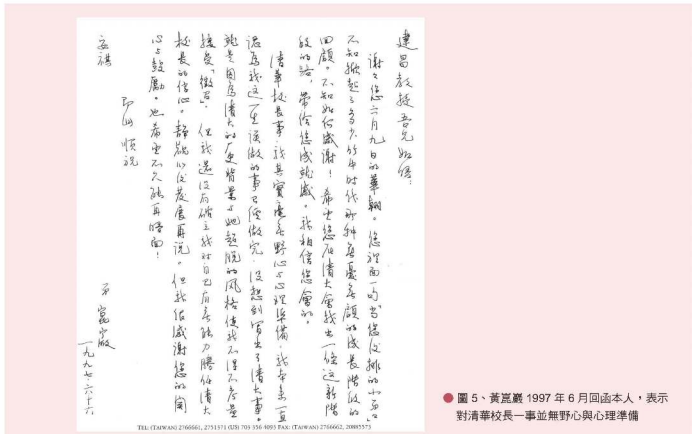 建昌教授吾兄如晤：
謝々您六月九日的華翰。您裡面一句"當您後排的小子"
不知掀起了多少少年時代那种無憂無顧的成長階段的
回顧。不知如何感謝！希望您在清大會找出一條這新階
段的路，帶給您成就感。我相信您會的。
清華校長事，我其實毫無野心与心理準備。我本來一直
認為我這一生該做的事已經做完，沒想到冒出了清大事。
純是因為清大的歷史背景与她超脫的风格使我不得不考量
接受「徵召」。但我還沒有確立我对自己有無能力勝任清大
校長的信心。静觀以後發展再說。但我很感謝您的関
心与鼓勵。也希望不久能再晤面！
即此 順祝
安祺
弟 崑巖
一九九七．六．十六
TEL: (TAIWAN) 2766661, 2751371 (US) 703 356 4093 FAX: (TAIWAN) 2766662, 20885573
● 圖 5、黃崑巖 1997 年 6 月回函本人，表示
對清華校長一事並無野心與心理準備